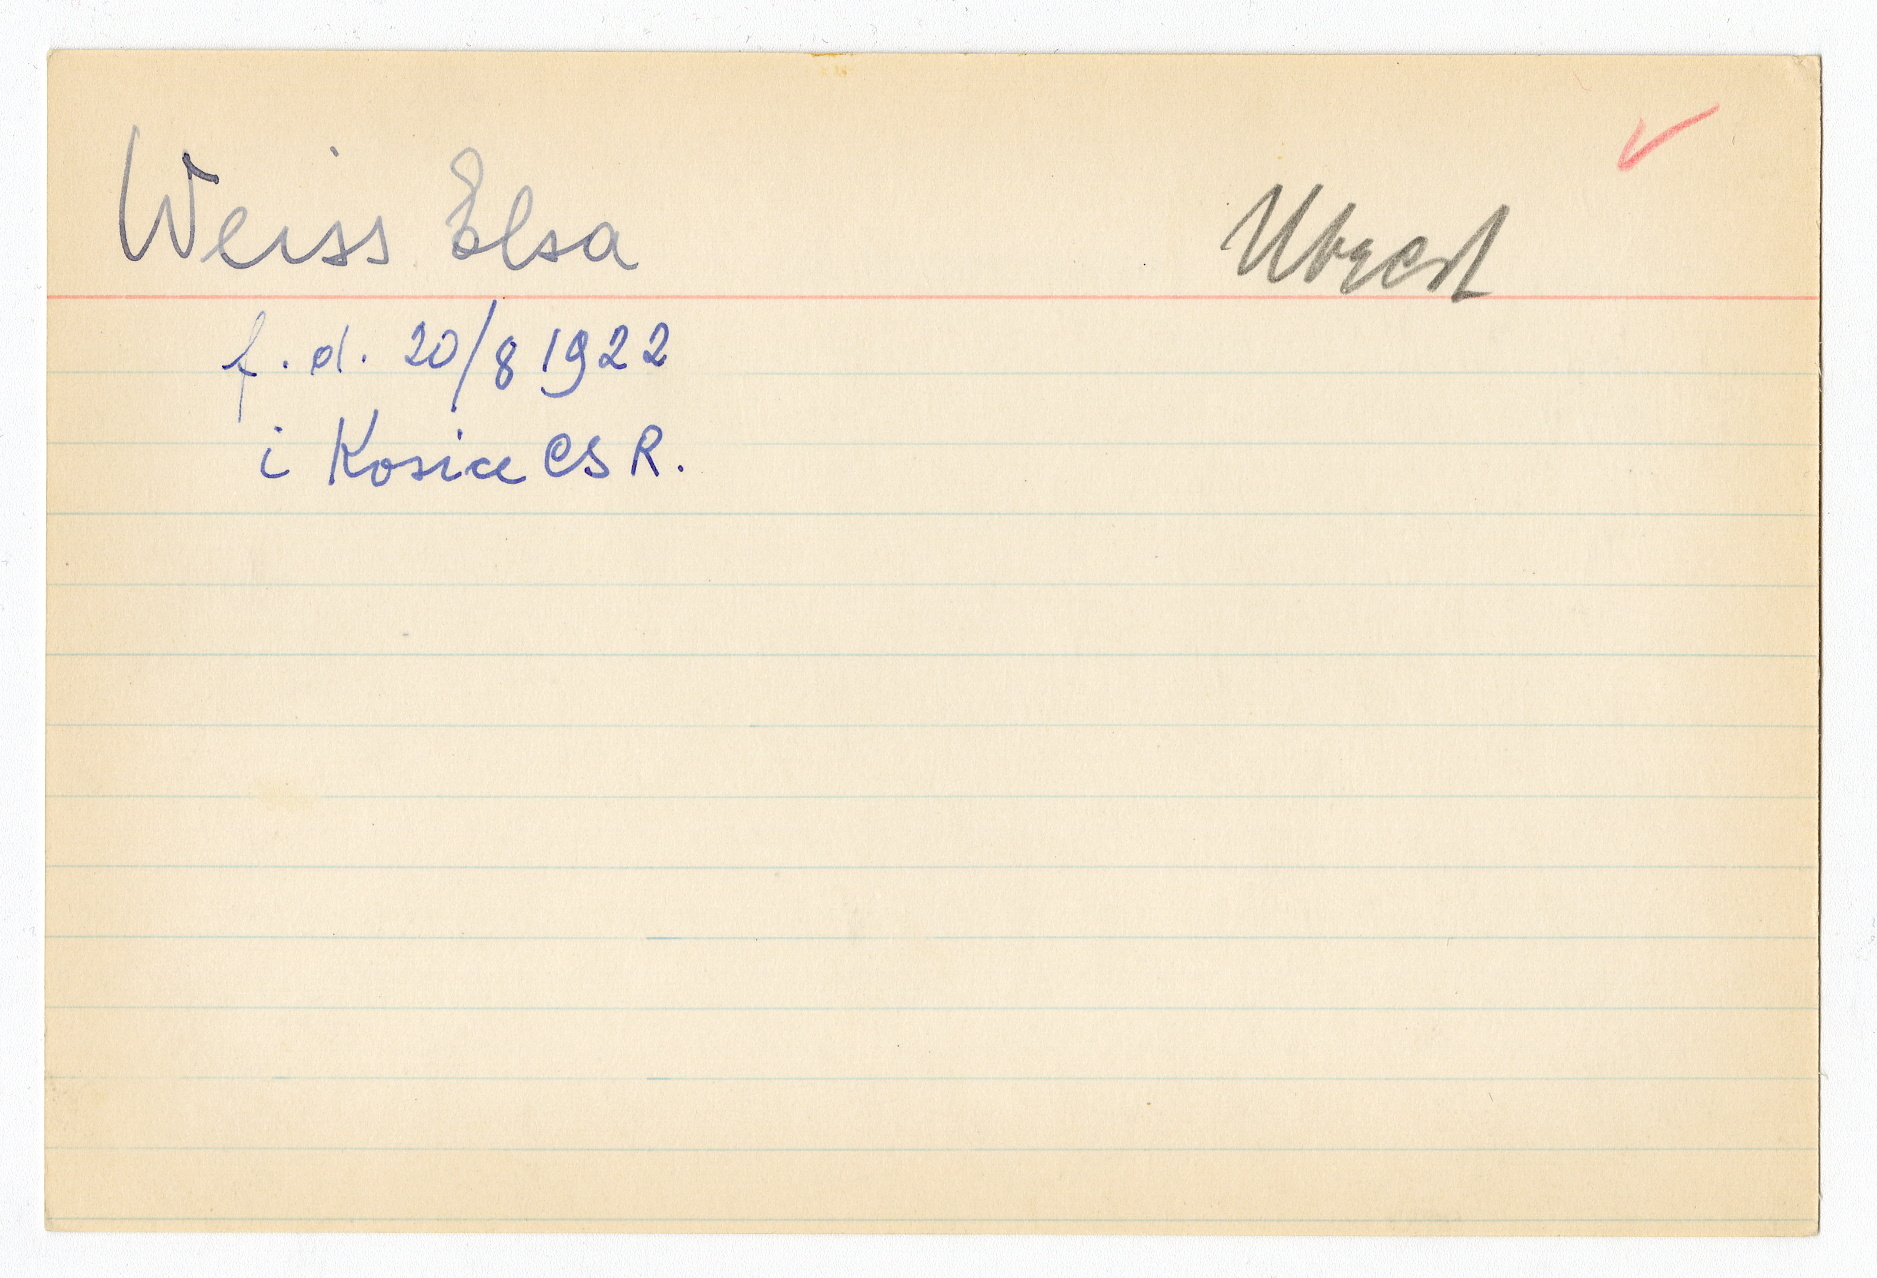 Weiss Elsa
f. d. 20/8 1922
i Kosice CSR.